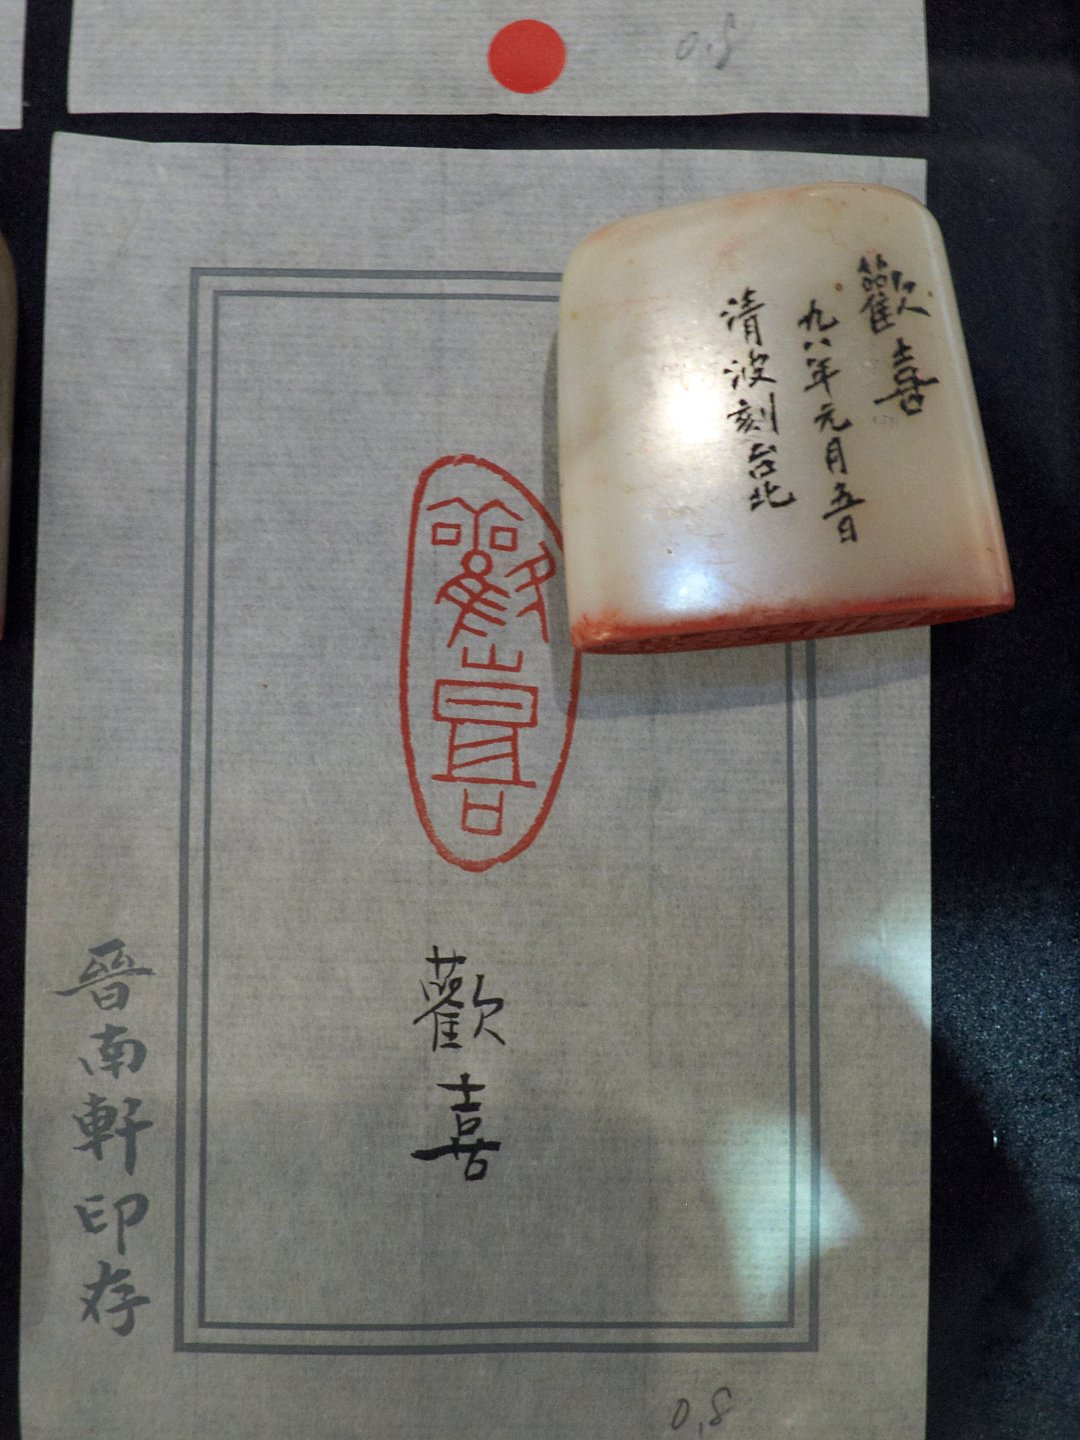 0.8
歡喜
九八年元月五日
清波刻台北
歡喜
歡喜
晉南軒印存
0.8